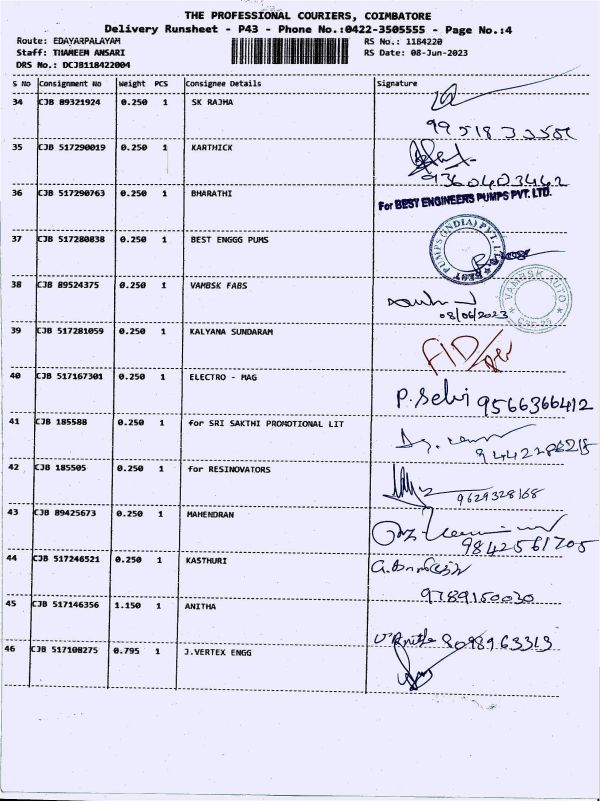 THE PROFESSIONAL COURIERS, COIMBATORE
Delivery Runsheet - P43 - Phone No.:0422-3505555 - Page No.:4
Route: EDAYARPALAYAM RS No.: 1184220
Staff: THAMEEM ANSARI RS Date: 08-Jun-2023
DRS No.: DCJB118422004
S No Consignment No Weight PCS Consignee Details Signature
34 CJB 89321924 0.250 1 SK RAJMA
35 CJB 517290019 0.250 1 KARTHICK
9360403442
36 CJB 517290763 0.250 1 BHARATHI
For BEST ENGINEERS PUMPS PVT. LTD.
37 CJB 517280838 0.250 1 BEST ENGGG PUMS
BEST PUMPS (INDIA) PVT. LTD.
38 CJB 89524375 0.250 1 VAMBSK FABS
VAMBSK AUTO
08/06/2023
39 CJB 517281059 0.250 1 KALYANA SUNDARAM
40 CJB 517167301 0.250 1 ELECTRO - MAG
P. Selvi 9566366412
41 CJB 185588 0.250 1 for SRI SAKTHI PROMOTIONAL LIT
42 CJB 185505 0.250 1 for RESINOVATORS
9629328168
43 CJB 89425673 0.250 1 MAHENDRAN
9842561705
44 CJB 517246521 0.250 1 KASTHURI
9789150030
45 CJB 517146356 1.150 1 ANITHA
8098963313
46 CJB 517108275 0.795 1 J.VERTEX ENGG